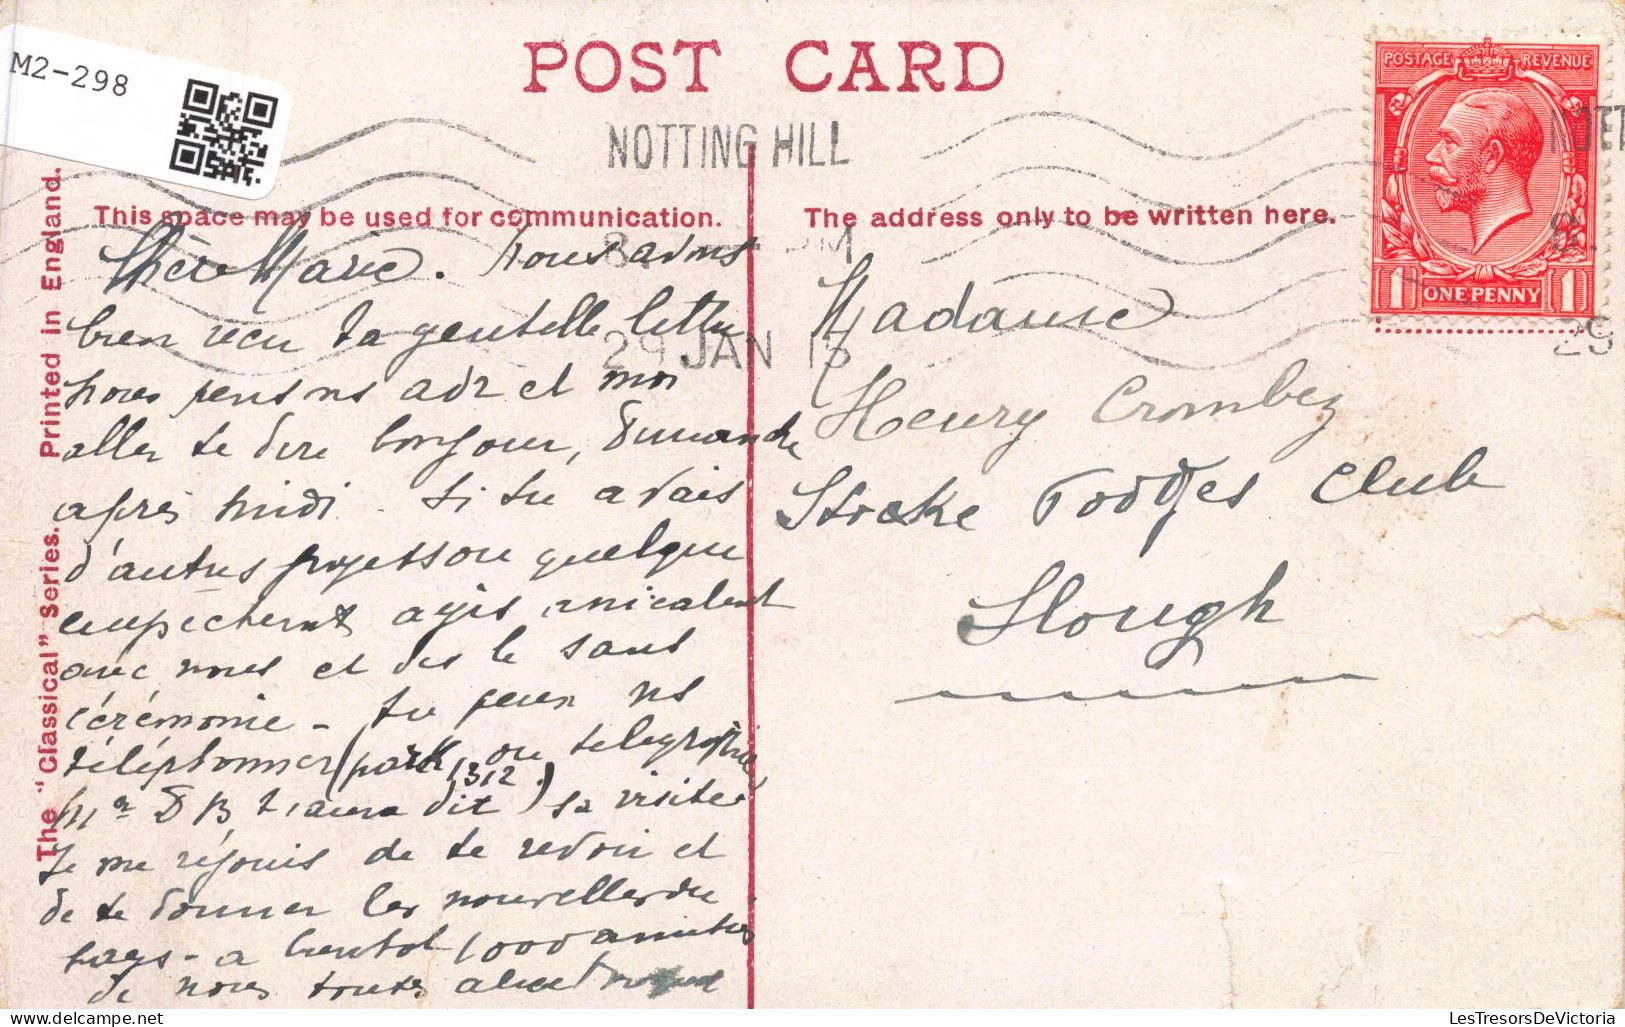 M2-298
POST CARD
NOTTING HILL
POSTAGE REVENUE
This space may be used for communication.
The address only to be written here.
PM
29 JAN 15
29
1 ONE PENNY 1
The "Classical" Series. Printed in England.
Chère Marie. Nous avons
bien reçu ta gentille lettre
nous pensons et moi
aller te dire bonjour, Dimanche
après midi. Si tu avais
d'autres projets ou quelque
empêchement
avec nous et sans
cérémonie - tu peux ns
téléphoner (park 1312) ou telegraphier
Mr D B sa visite
Je me réjouis de te revoir et
de te donner les nouvelles du
pays - a bientot 1000 amitiés
de nous toutes
Madame
Henry Crombez
Stocke Poodges Club
Slough
LesTresorsDeVictoria
delcampe.net